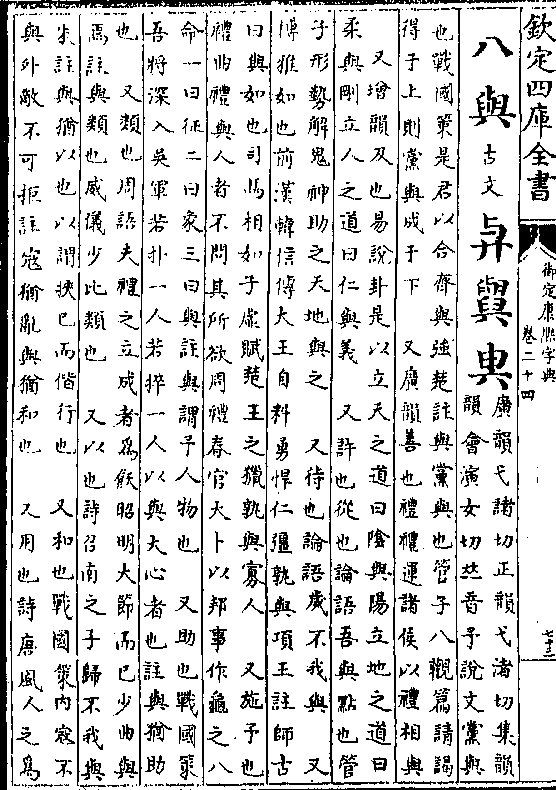 欽定四庫全書
御定康熙字典
卷二十四
八與古文㒜𦦲㪵廣韻弋諸切正韻弋渚切集韻
韻會演女切𠀤音予說文黨與
也戰國策是君以合齊與強楚註與黨與也管子八觀篇請謁
得于上則黨與成于下 又廣韻善也禮禮運諸侯以禮相與
又增韻及也易說卦是以立天之道曰陰與陽立地之道曰
柔與剛立人之道曰仁與義 又許也從也論語吾與點也管
子形勢解鬼神助之天地與之 又待也論語歲不我與 又
博雅如也前漢韓信傳大王自料勇悍仁彊孰與項王註師古
曰與如也司馬相如子虛賦楚王之獵孰與寡人 又施予也
禮曲禮與人者不問其所欲周禮春官大卜以邦事作龜之八
命一曰征二曰象三曰與註與謂予人物也 又助也戰國策
吾將深入吳軍若扑一人若捽一人以與大心者也註與猶助
也 又類也周語夫禮之立成者為飫昭明大節而已少曲與
焉註與類也威儀少比類也 又以也詩召南之子歸不我與
朱註與猶以也以謂挾已而偕行也 又和也戰國策內寇不
與外敵不可拒註寇猶亂與猶和也 又用也詩唐風人之為